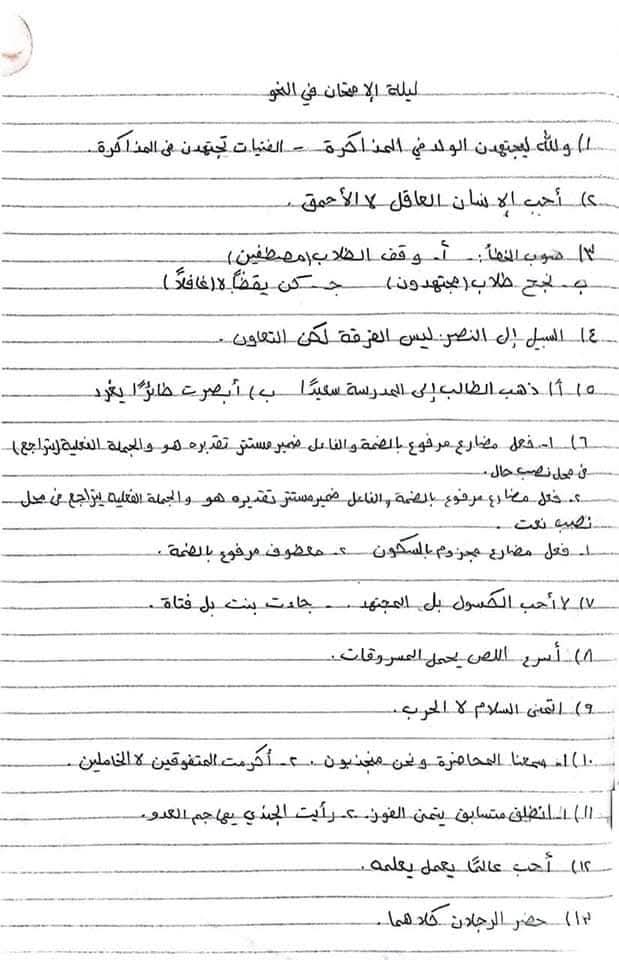 ليلة الإمتحان في النحو
١) والله ليجتهدن الولد في المذاكرة - الفتيات تجتهدن في المذاكرة.
٢) أحب الإنسان العاقل لا الأحمق.
٣) صوب الخطأ: أ- وقف الطلاب (مصطفين)
ب- نجح طلاب (مجتهدون) جـ- كن يقضًا لا (غافلًا)
٤) السبيل إلى النصر ليس الفرقة لكن التعاون.
٥) أ) ذهب الطالب إلى المدرسة سعيدًا ب) أبصرت طائرًا يغرد
٦) ١- فعل مضارع مرفوع بالضمة والفاعل ضمير مستتر تقديره هو والجملة الفعلية (يتراجع)
في محل نصب حال.
٢- فعل مضارع مرفوع بالضمة والفاعل ضمير مستتر تقديره هو والجملة الفعلية يتراجع في محل
نصب نعت.
١- فعل مضارع مجزوم بالسكون ٢- معطوف مرفوع بالضمة.
٧) لا أحب الكسول بل المجتهد. - جاءت بنت بل فتاة.
٨) أسرع اللص يحمل المسروقات.
٩) اتمنى السلام لا الحرب.
١٠) ١- سمعنا المحاضرة ونحن منجذبون. ٢- أكرمت المتفوقين لا الخاملين.
١١) ١- انطلق متسابق يتمن الفوز. ٢- رأيت الجندي يهاجم العدو.
١٢) أحب عالمًا يعمل بعلمه.
١٣) حضر الرجلان كلاهما.